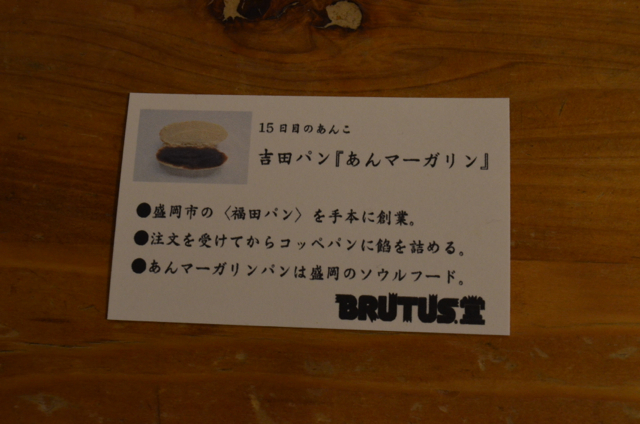 15日目のあんこ
吉田パン『あんマーガリン』
●盛岡市の〈福田パン〉を手本に創業。
●注文を受けてからコッペパンに餡を詰める。
●あんマーガリンパンは盛岡のソウルフード。
BRUTUS.堂